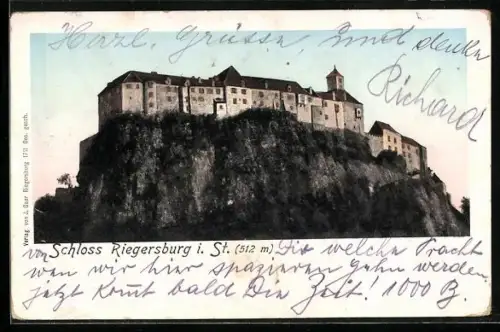 Herzl. Grüsse, Und denke
Richard
Verlag von J. Bauer Riegersburg 170 Ges. gesch.
von Schloss Riegersburg i. St. (512 m) Dir welche Pracht
wen wir hier spazieren gehn werden
jetzt komt bald Die Zeit! 1000 B.